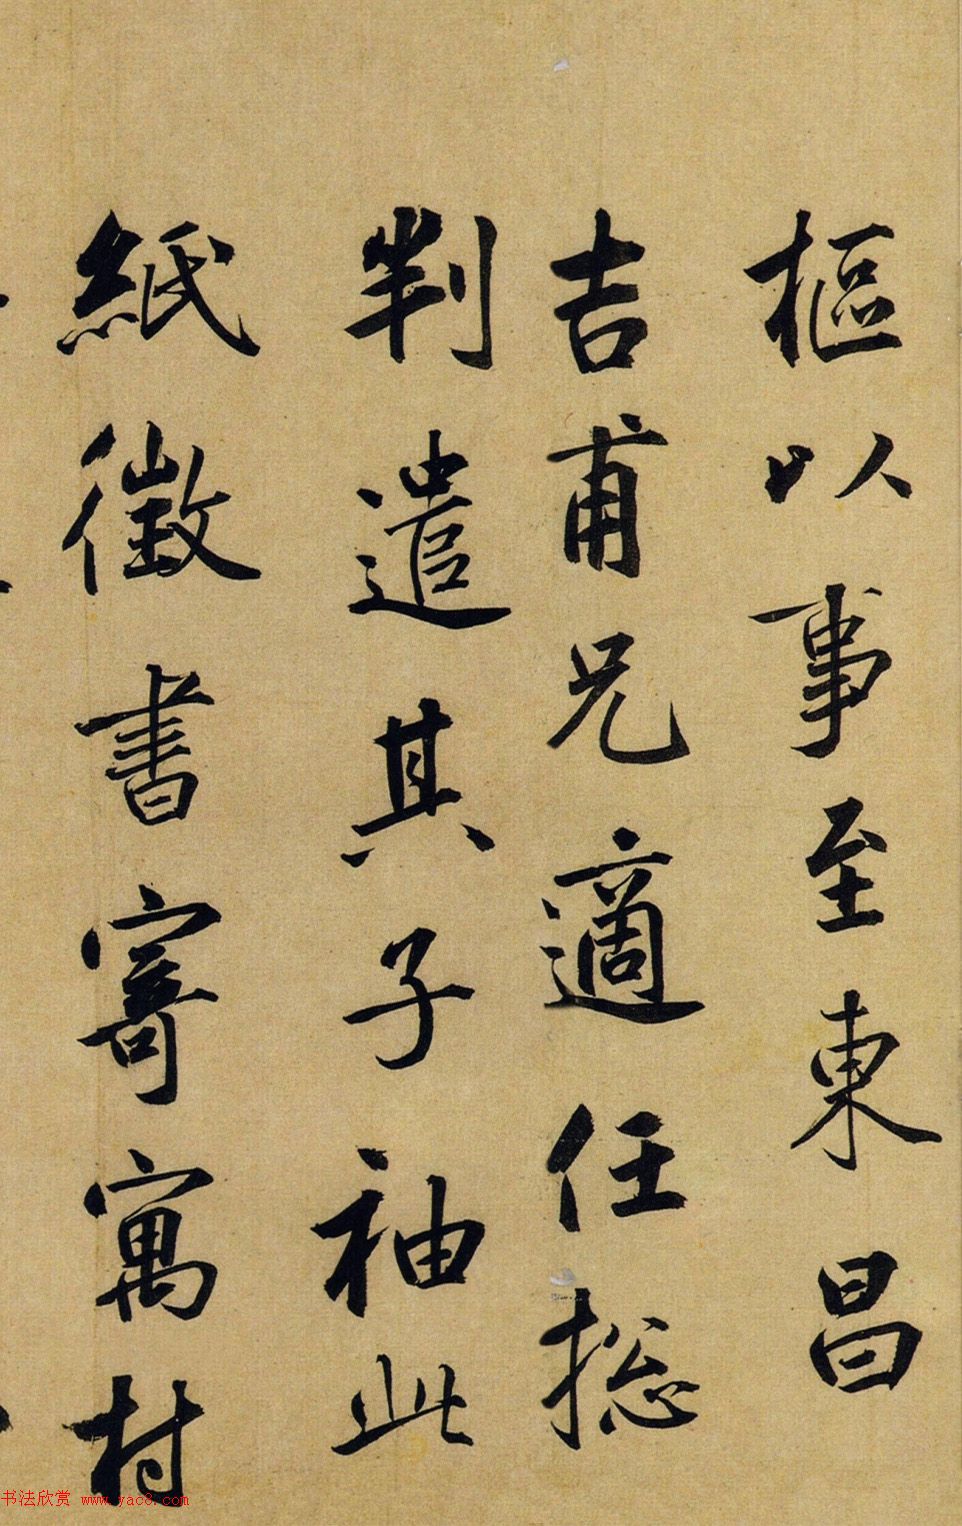 樞以事至東昌
吉甫兄適任捴
判遣其子袖此
紙徵書寄寓村
书法欣赏 www.yac8.com